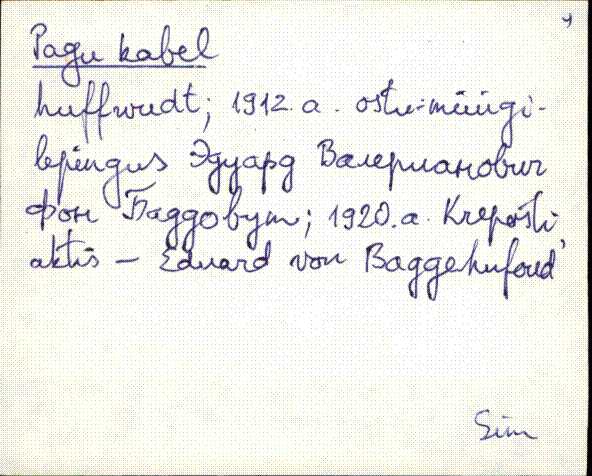 Pagu kabel
huffwudt; 1912. a. ostu-müügi-
lepingus Эдуард Валерианович
фон Багговут; 1920. a. Kreposti
aktis – Eduard von Baggehufoud
Sim